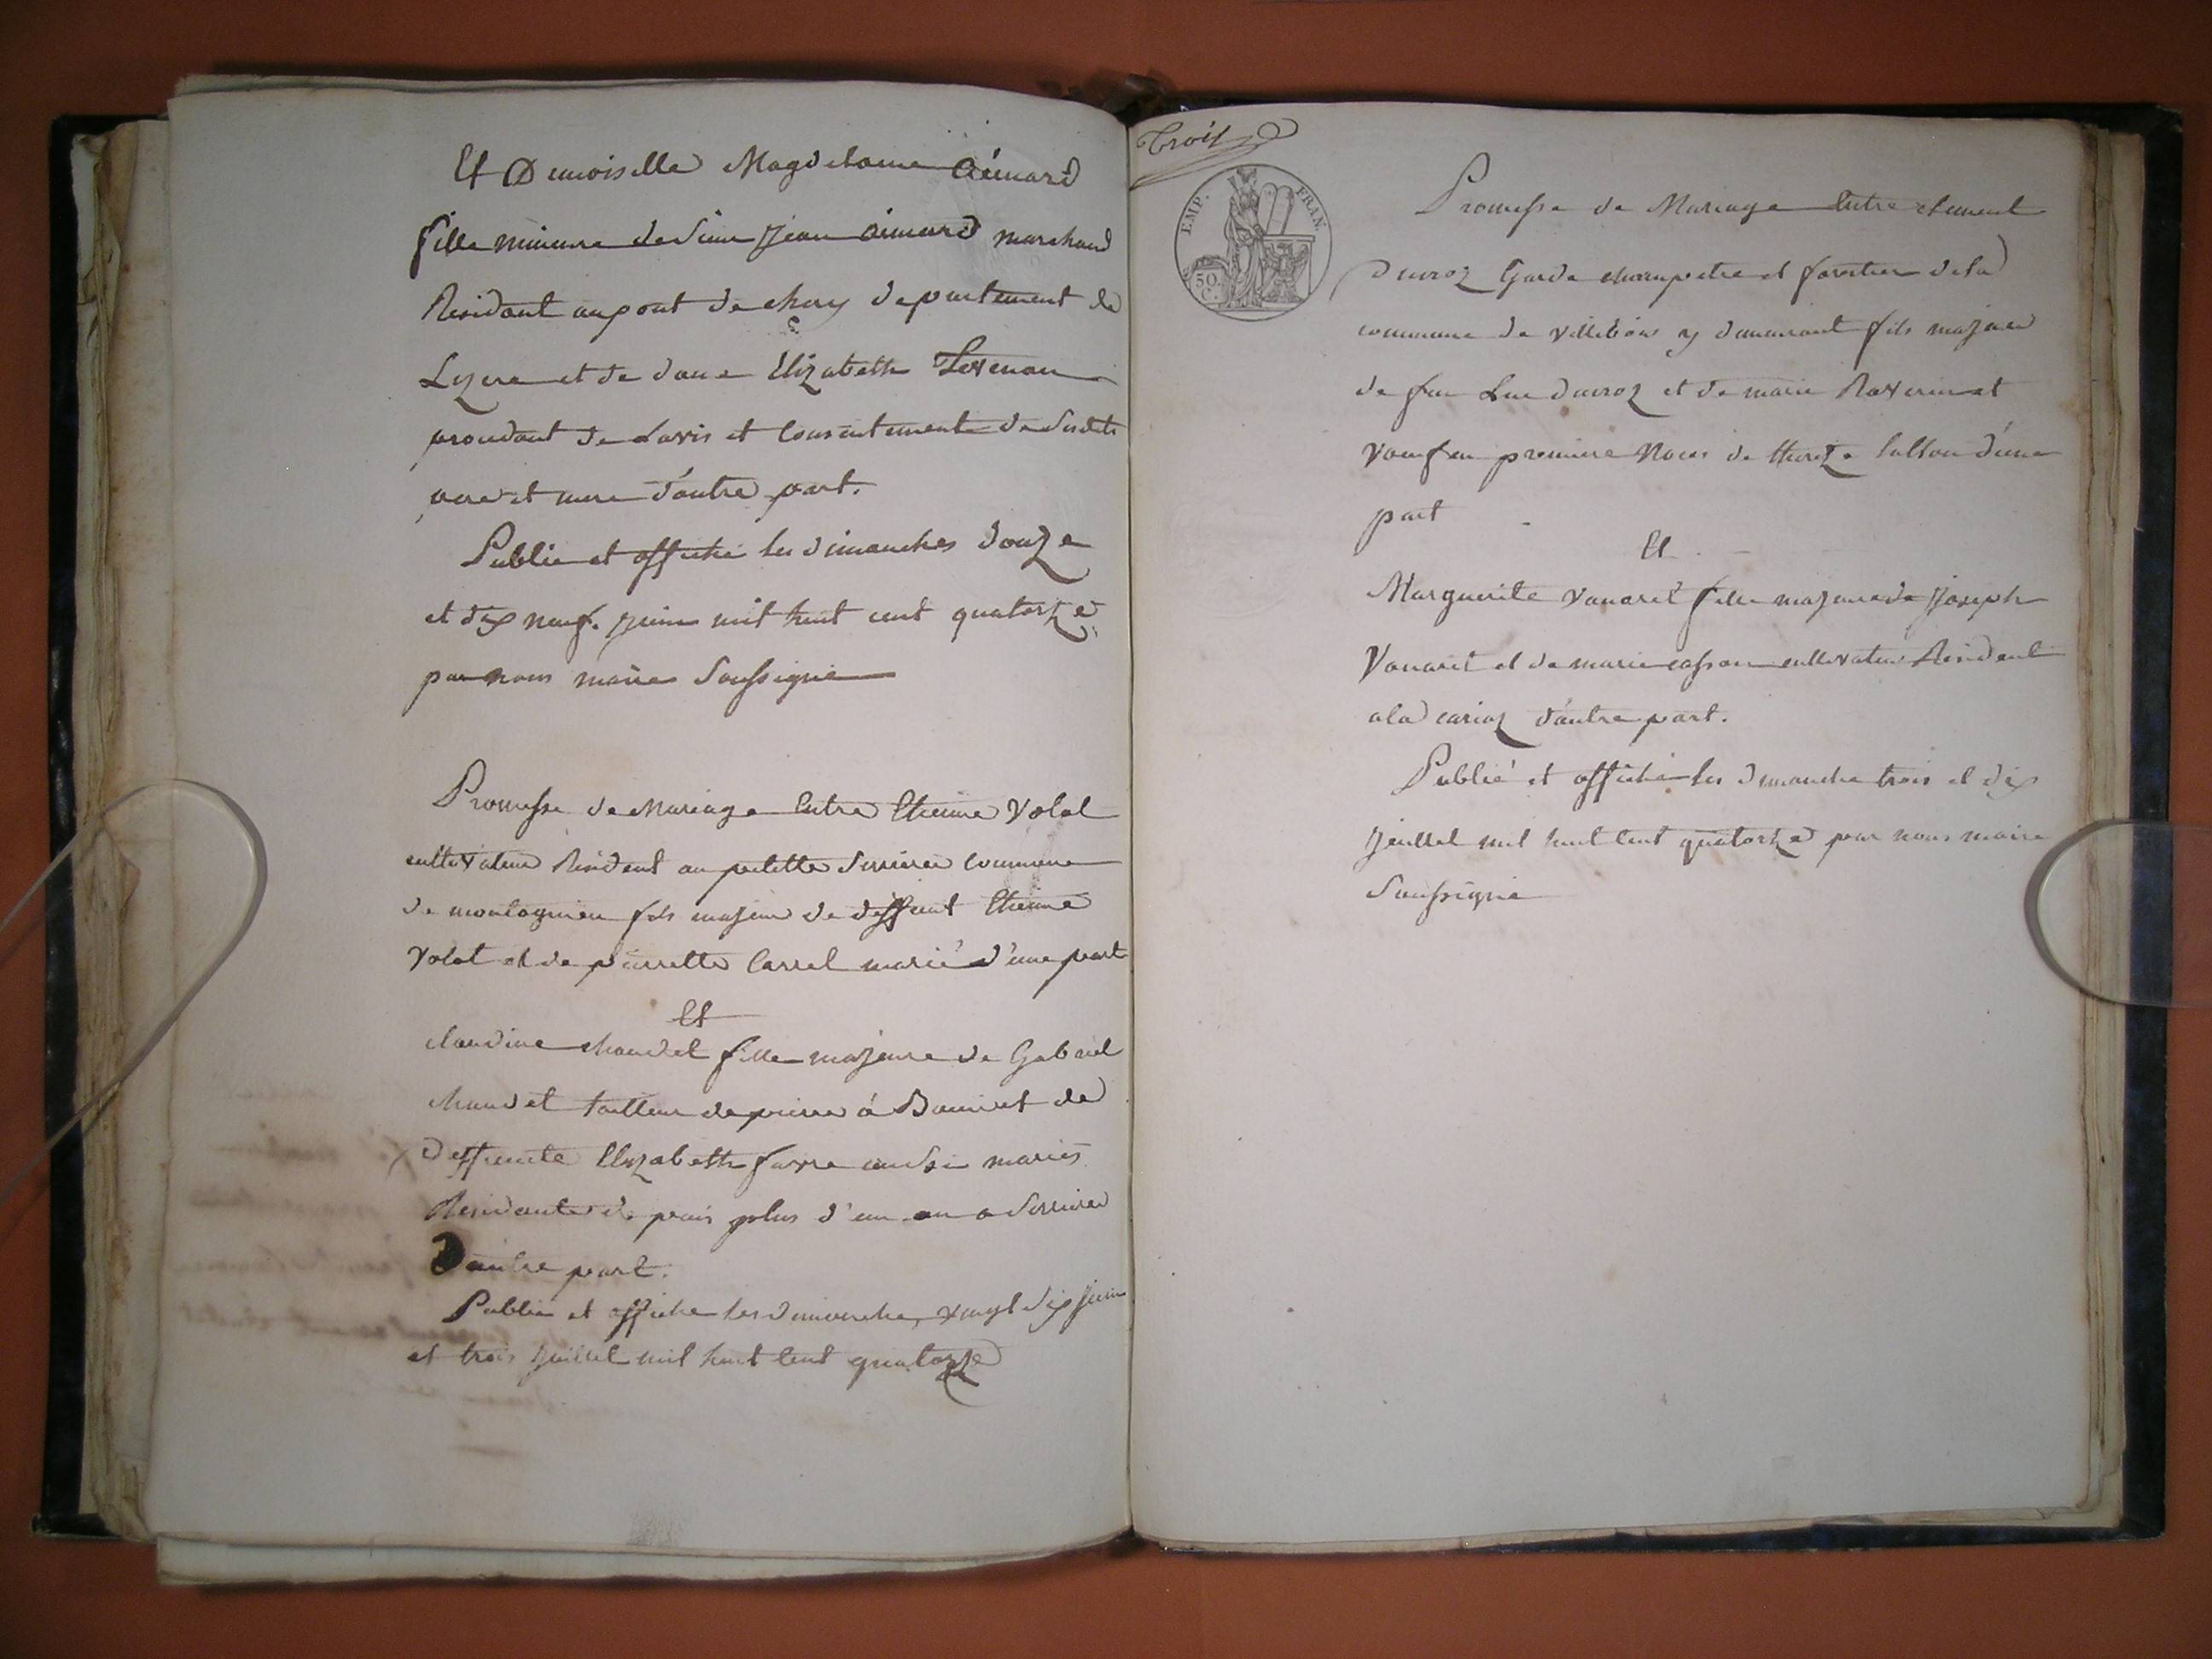 Et Demoiselle Magdelaine Aimard
fille mineure de Sieur Jean Aimard marchand
Residant au pont de chery departement de
Lizere et de dame Elizabeth
procedant de Lavis et Consentement de Susdits
pere et mere d'autre part.
Publié et affiché les dimanches douze
et dix neuf Juin mil huit cent quatorze
par nous maire Soussigné
Promesse de Mariage Entre Etienne Volat
cultivateur Resident au petitte Serriere commune
de montagnieu fils majeur de deffunt Etienne
Volat et de pierrette Carrel marié d'une part
Et
claudine chaudet fille majeure de Gabriel
chaudet tailleur de pierre à et de
deffunte Elizabeth favre aussi mariés
Residante depuis plus d'un an a Serriere
D'autre part.
Publié et affiché les dimanche, vingt six Juin
et trois Juillet mil huit Cent quatorze
Trois
EMP. FRAN.
50 C.
Promesse de Mariage Entre clement
Ducroz Garde champetre et forestier de la
commune de villebois y demeurant fils majeur
de feu Luc Ducroz et de marie
Veuf en premiere Noces de d'une
part
Et
Marguerite Vanaret fille majeure de Joseph
Vanaret et de marie casson cultivateur Resident
a la cariaz d'autre part.
Publié et affiché les dimanche trois et dix
Jeuillet mil huit Cent quatorze par nous maire
Soussigné